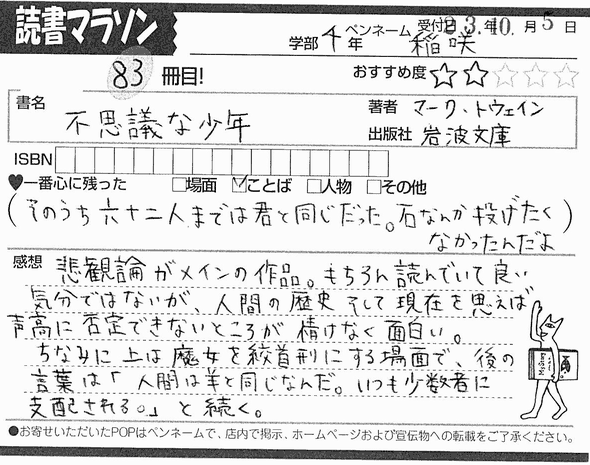 読書マラソン
学部 4年 ペンネーム 稲咲 受付日 3.年10.月5日
83冊目! おすすめ度 ★★☆☆☆
書名 不思議な少年
著者 マーク・トウェイン
出版社 岩波文庫
ISBN
♥一番心に残った □場面 ☑ことば □人物 □その他
(そのうち六十二人までは君と同じだった。石なんか投げたく
なかったんだよ)
感想 悲観論がメインの作品。もちろん読んでいて良い
気分ではないが、人間の歴史そして現在を思えば
声高に否定できないところが情けなく面白い。
ちなみに上は魔女を絞首刑にする場面で、後の
言葉は「人間は羊と同じなんだ。いつも少数者に
支配される。」と続く。
●お寄せいただいたPOPはペンネームで、店内で掲示、ホームページおよび宣伝物への転載をご了承ください。